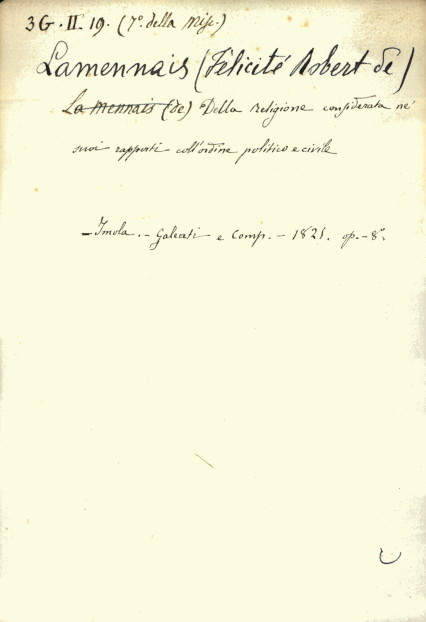 3 G. II. 19. (7º. della Misc.)
Lamennais (Félicité Robert de)
La Mennais (de) Della religione considerata ne'
suoi rapporti coll'ordine politico e civile
– Imola. – Galeati e Comp. – 1821. op. – 8º.